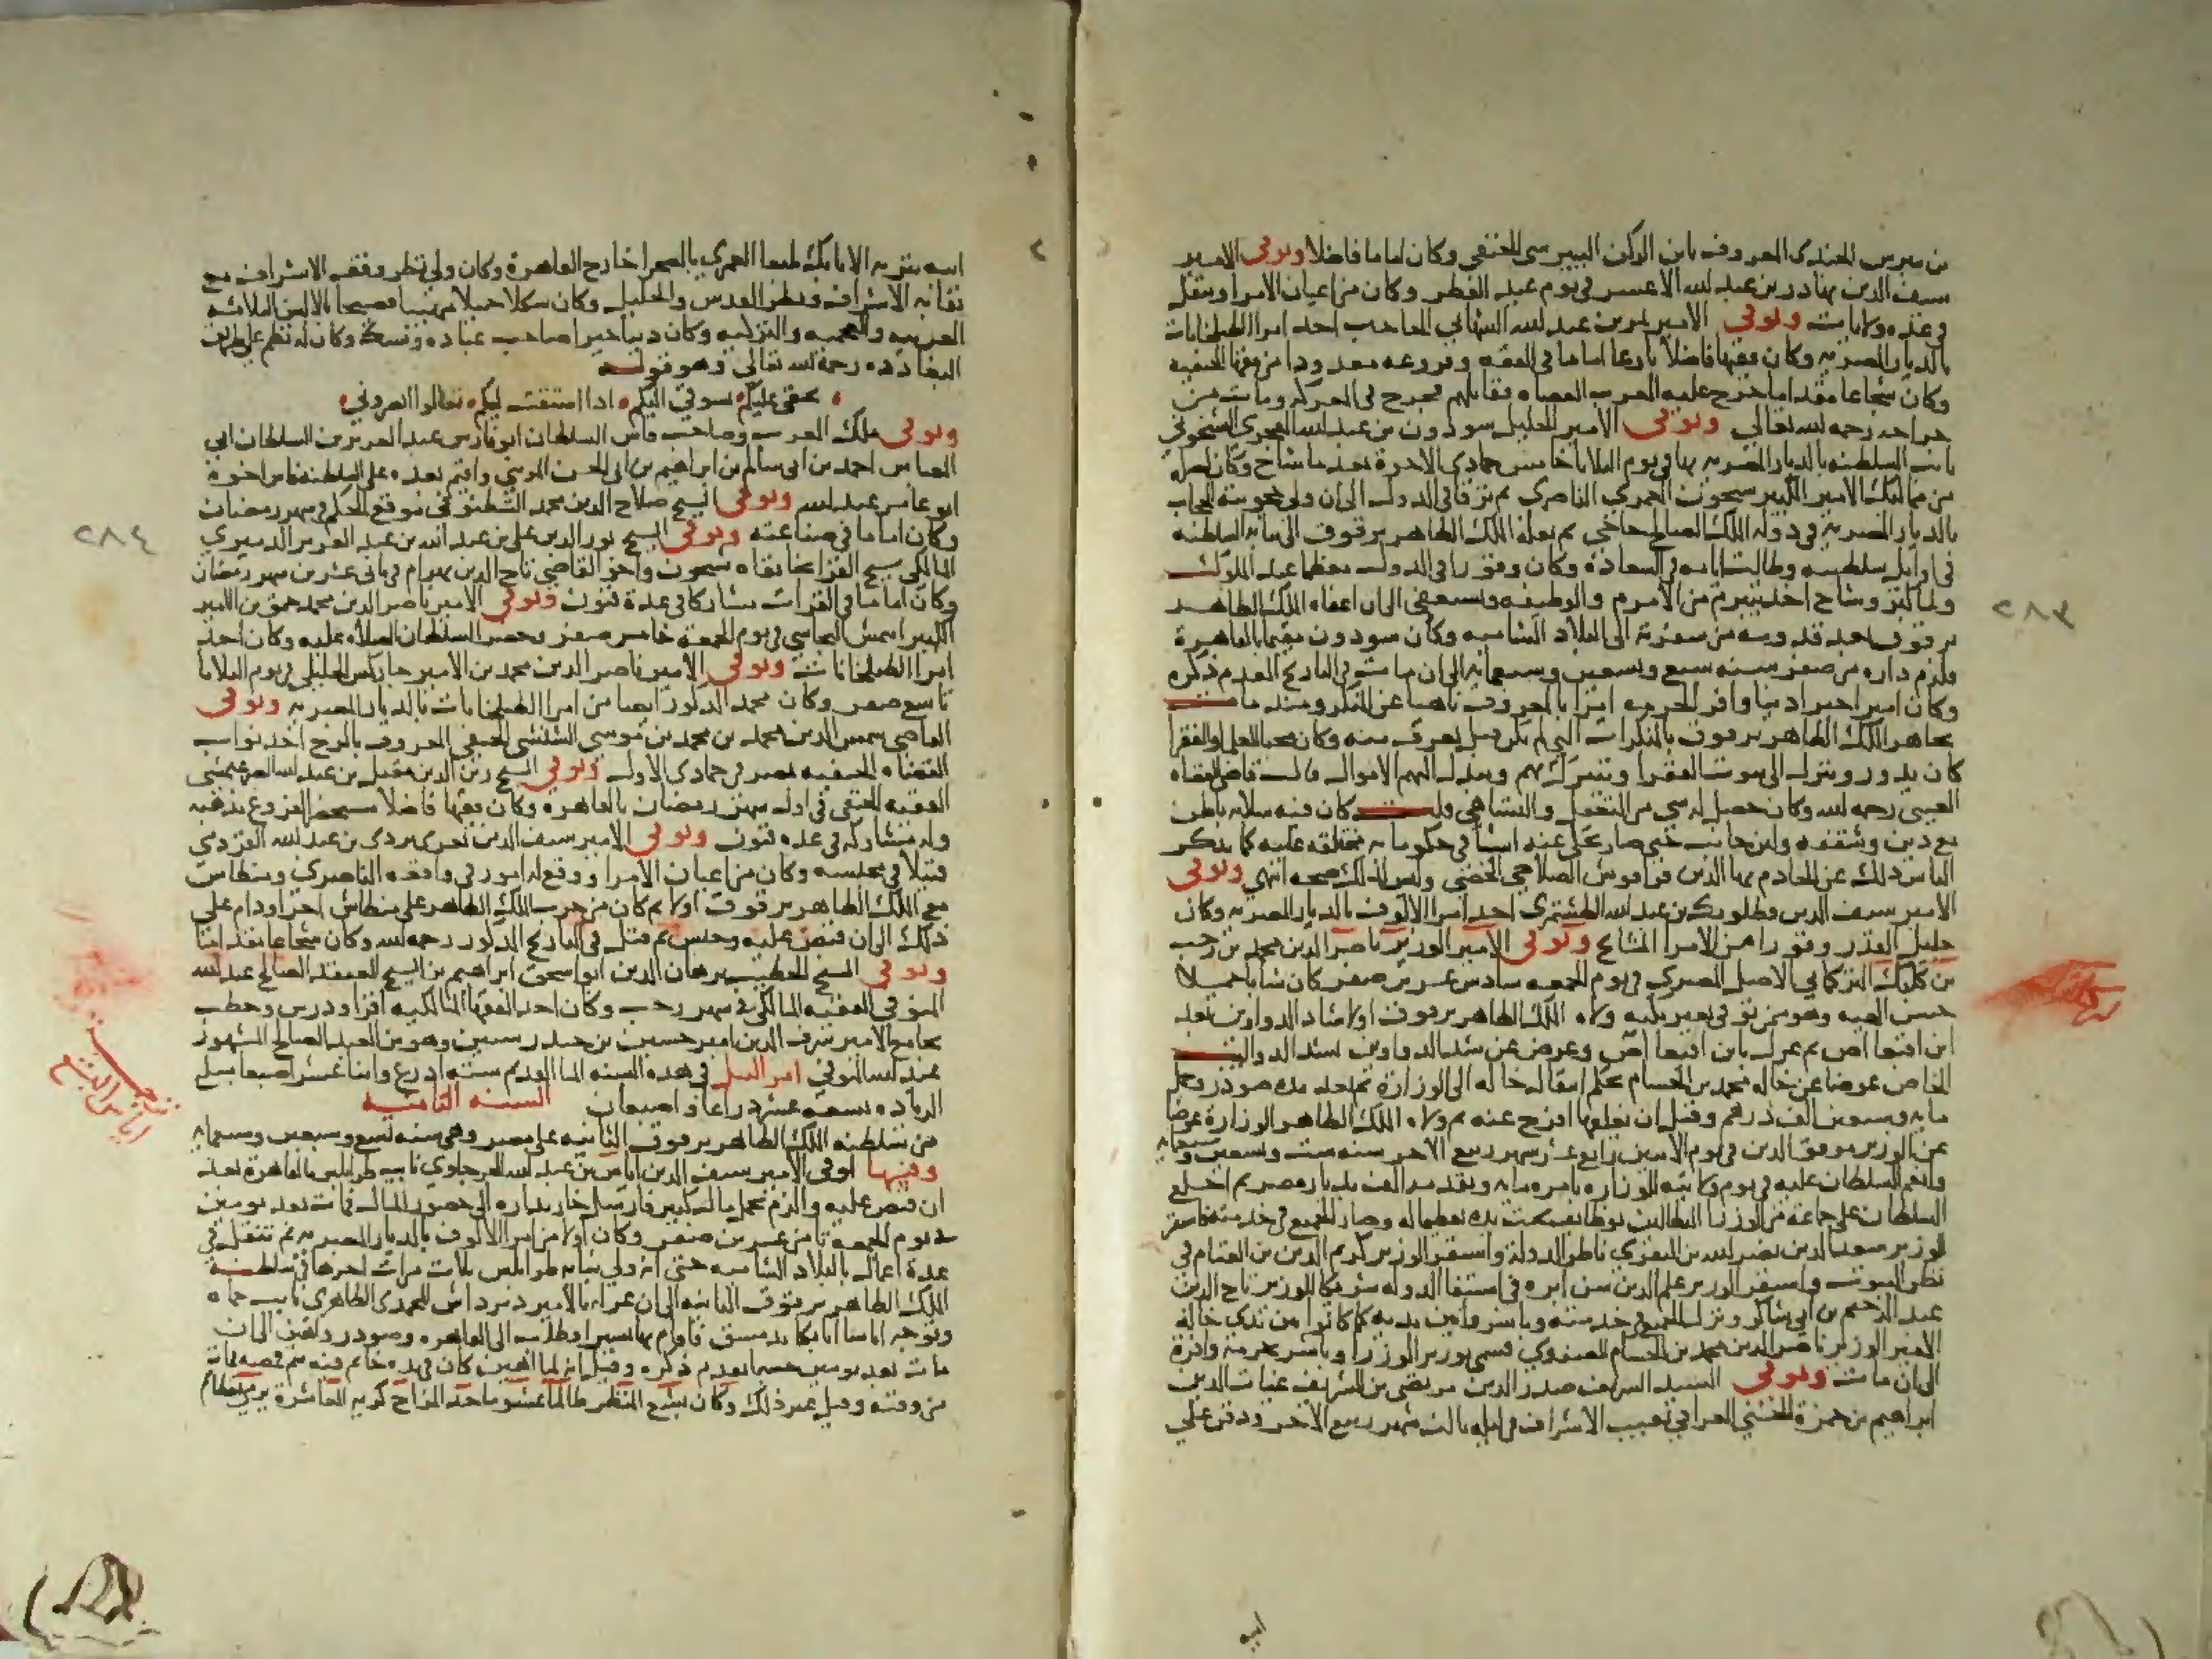 بن بيبرس الجندى المعروف بابن الركن البيبرسى الحنفى وكان اماما فاضلا وتوفى الامير
سيف الدين بهادر بن عبد الله الاعسر فى يوم عيد الفطر وكان من اعيان الامرا وتنقل
فى عده ولايات وتوفى الامير بن عبد الله الشهابى الحاجب احد امرا الطبلخانات
بالديار المصريه وكان فقيها فاضلا بارعا اماما فى الفقه وفروعه معدودا من فقها الحنفيه
وكان شجاعا مقداما خرج عليه العرب العصاه فقاتلهم فجرح فى المعركه ومات من
جراحه رحمه الله تعالى وتوفى الامير الجليل سودون بن عبد الله الفخرى الشيخونى
نايب السلطنه بالديار المصريه بها فى يوم الثلاثا خامس جمادى الاخرة بعد ما شاخ وكان اصله
من مماليك الامير الكبير شيخون العمرى الناصرى ثم ترقا فى الدول الى ان ولى حجوبية الحجاب
بالديار المصريه فى دوله الملك الصالح حاجى ثم نقله الملك الظاهر برقوق الى نيابه السلطنه
فى اوايل سلطنته وطالت ايامه فى السعادة وكان وقورا فى الدول معظما عند الملوك
ولما كبر وشاخ اخذ يتبرم من الامره والوظيفه ويستعفى الى ان اعفاه الملك الظاهر
برقوق بعد قدومه من سفرته الى البلاد الشاميه وكان سودون مقيما بالقاهرة
ولزم داره من صفر سنه سبع وتسعين وسبعمايه الى ان مات فى التاريخ المقدم ذكره
وكان اميرا خيرا دينا وافر الحرمه امرا بالمعروف ناهيا عن المنكر ومنذ مات
تجاهر الملك الظاهر برقوق بالمنكرات التى لم تكن قبل تعرف منه وكان محبا للعلما والفقرا
كان يدور وينزل الى بيوت الفقرا ويتبرك بهم ويبذل اليهم الاموال قال قاضى القضاه
العينى رحمه الله وكان حصل له شى من التغفل والتساهى قلت كان فيه سلامه باطن
مع دين وشفقه ولين جانب حتى صار يحكى عنه اشيا فى حكوماته مختلقه عليه كما يذكر
الناس ذلك عن الخادم بها الدين قراقوش الصلاحى الخصى وليس لذلك صحه انتهى وتوفى
الامير سيف الدين قطلوبك بن عبد الله الطشتمرى احد امرا الالوف بالديار المصريه وكان
جليل القدر وقورا من الامرا المشايخ وتوفى الامير الوزير ناصر الدين محمد بن رجب
بن كلبك التركمانى الاصل المصرى فى يوم الجمعه سادس عشرين صفر كان شابا جميلا
حسن الهيه وهو ممن توفى بغير نكبه ولاه الملك الظاهر برقوق اولا شاد الدواوين بعد
ابن اقبغا اص ثم عزل بابن اقبغا اص وعوض عن شد الدواوين بشد الدواليب
الخاص عوضا عن خاله محمد بن الحسام بحكم انتقال خاله الى الوزارة ثم بعد مده صودر وحمل
مايه وسبعين الف درهم وقبل ان يغلقها افرج عنه ثم ولاه الملك الظاهر الوزارة عوضا
عن الوزير موفق الدين فى يوم الاثنين رابع عشر شهر ربيع الاخر سنه ست وتسعين وسبعمايه
وانعم السلطان عليه فى يوم ولايته للوزاره بامره مايه وتقدمه الف بديار مصر ثم اخلع
السلطان على جماعة من الوزرا البطالين بوظايف تحت يده تعظيما له وصار الجميع فى خدمته فاستقر
الوزير سعد الدين نصر الله بن البقرى ناظر الدولة واستقر الوزير كريم الدين بن الغنام فى
نظر البيوت واستقر الوزير علم الدين سن ابره فى استيفا الدوله شريكا للوزير تاج الدين
عبد الرحيم بن ابى شاكر ونزل الجميع فى خدمته وباشروا بين يديه كما كانوا بين يدى خاله
الامير الوزير ناصر الدين محمد بن الحسام الصفوى فسمى بوزير الوزرا وباشر بحرمة وافرة
الى ان مات وتوفى السيد الشريف صدر الدين مرتضى بن الشريف غياث الدين
ابراهيم بن حمزة الحسنى العراقى نقيب الاشراف فى ليله ثالث شهر ربيع الاخر ودفن على
ابيه
٢٨٣
ابيه بتربه الاتابك يلبغا العمرى بالصحرا خارج القاهرة وكان ولى نظر وقف الاشراف مع
نقابه الاشراف ونظر القدس والخليل وكان شكلا جميلا مهيبا فصيحا بالالسن الثلاثه
العربيه والعجميه والتركيه وكان دينا خيرا صاحب عباده ونسك وكان له نظم على طريق
البغاددة رحمه الله تعالى وهو قوله
بحقى عليكم سوقى اليكم اذا اشتقت ليكم تعالوا ابصرونى
وتوفى ملك الغرب وصاحب فاس السلطان ابو فارس عبد العزيز بن السلطان ابى
العباس احمد بن ابى سالم بن ابراهيم بن ابى الحسن المرينى واقيم بعده على سلطنه فاس اخوه
ابو عامر عبد الله وتوفى الشيخ صلاح الدين محمد الشطنوفى موقع الحكم فى شهر رمضان
وكان اماما فى صناعته وتوفى الشيخ نور الدين على بن عبد الله بن عبد العزيز الدميرى
المالكى شيخ القرا بخانقاه شيخون واخو القاضى تاج الدين بهرام فى ثانى عشرين شهر رمضان
وكان اماما فى القرات مشاركا فى عدة فنون وتوفى الامير ناصر الدين محمد جمق بن الامير
الكبير ايتمش البجاسى فى يوم الجمعة خامس صفر وحضر السلطان الصلاه عليه وكان احد
امرا الطبلخانات وتوفى الامير ناصر الدين محمد بن الامير جاركس الخليلى فى يوم الثلاثا
تاسع صفر وكان محمد المذكور ايضا من امرا الطبلخانات بالديار المصريه وتوفى
القاضى شمس الدين محمد بن محمد بن موسى الشنشى الحنفى المعروف بالرخ احد نواب
القضاه الحنفيه بمصر فى جمادى الاولى وتوفى الشيخ زين الدين مقبل بن عبد الله الصرغتمشى
الفقيه الحنفى فى اول شهر رمضان بالقاهره وكان فقيها فاضلا مستحضر الفروع مذهبه
وله مشاركه فى عده فنون وتوفى الامير سيف الدين تغرى بردى بن عبد الله القردمى
قتيلا فى محبسه وكان من اعيان الامرا ووقع له امور فى واقعه الناصرى ومنطاش
مع الملك الظاهر برقوق اولا ثم كان من حزب الملك الظاهر على منطاش اخرا ودام على
ذلك الى ان قبض عليه وحبس ثم قتل فى التاريخ المذكور رحمه الله وكان شجاعا مقداما
وتوفى الشيخ الخطيب برهان الدين ابو اسحق ابراهيم بن الشيخ المعتقد الصالح عبد الله
المنوفى الفقيه المالكى فى شهر رجب وكان احد الفقها المالكيه اقرا ودرس وخطب
بجامع الامير شرف الدين امير حسين بن حيدر سنين وهو من العبد الصالح المشهور
بعبد الله المنوفى امر النيل فى هذه السنه الما القديم سته اذرع واثنا عشر اصبعا مبلغ
الزياده تسعه عشر ذراعا واصبعان السنه الثامنيه
من سلطنه الملك الظاهر برقوق الثانيه على مصر وهى سنه تسع وتسعين وسبعمايه
وفيها توفى الامير سيف الدين اياس بن عبد الله الجرجاوى نايب طرابلس بالقاهرة بعد
ان قبض عليه والزم بحمل مال كبير فارسل خازنداره الى حضور المال فمات بعد يومين
فى يوم الجمعة ثامن عشرين صفر وكان اولا من امرا الالوف بالديار المصريه ثم تنقل فى
عدة اعمال بالبلاد الشاميه حتى انه ولى نيابه طرابلس ثلاث مرات اخرها فى سلطنه
الملك الظاهر برقوق الثانيه الى ان عزله بالامير دمرداش المحمدى الظاهرى نايب حماه
وتوجه اياس اتابكا بدمشق فاقام بها يسيرا وطلب الى القاهره وصودر واهين الى ان
مات بعد يومين حسبما تقدم ذكره وقيل انه لما اهين كان فى يده خاتم فيه سم فمصه فمات
من وقته وقيل غير ذلك وكان بشع المنظر ظالما غشوما حاد المزاج كريه المعاشرة يرمى بعظايم
٢٨٤